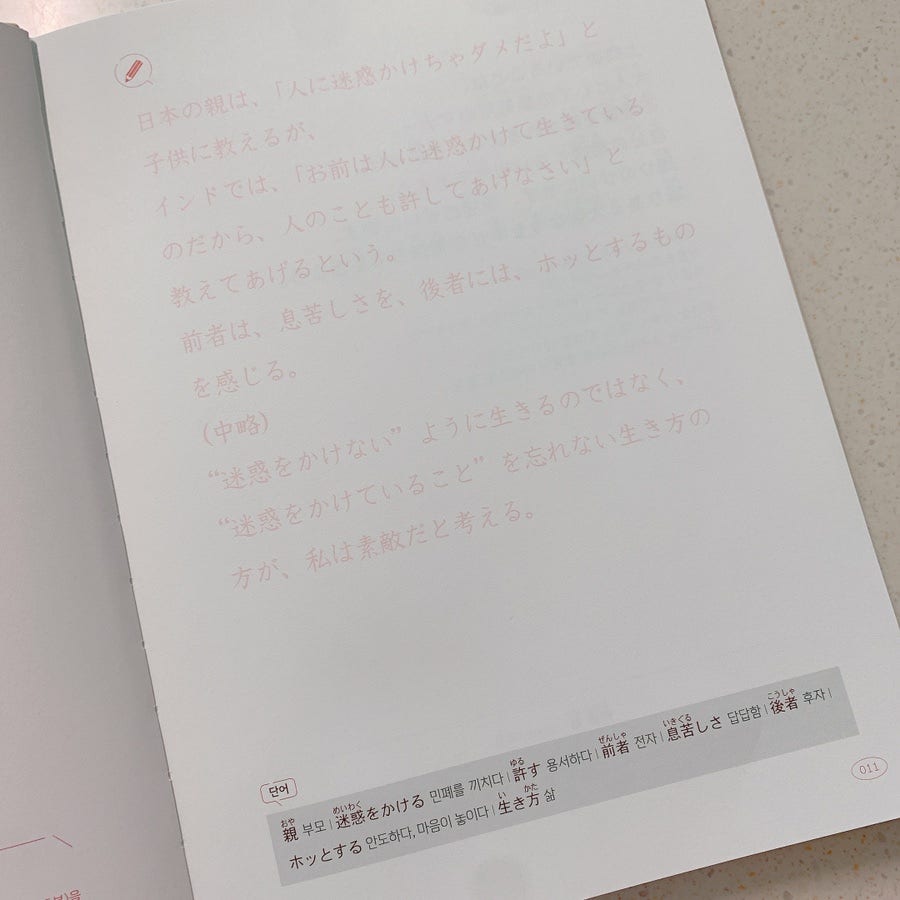 日本の親は、「人に迷惑かけちゃダメだよ」と
子供に教えるが、
インドでは、「お前は人に迷惑かけて生きている
のだから、人のことも許してあげなさい」と
教えてあげるという。
前者は、息苦しさを、後者には、ホッとするもの
を感じる。
(中略)
“迷惑をかけない” ように生きるのではなく、
“迷惑をかけていること” を忘れない生き方の
方が、私は素敵だと考える。
단어
おや めいわく ゆる ぜんしゃ いきぐる こうしゃ
親 부모 | 迷惑をかける 민폐를 끼치다 | 許す 용서하다 | 前者 전자 | 息苦しさ 답답함 | 後者 후자 |
い かた
ホッとする 안도하다, 마음이 놓이다 | 生き方 삶
011